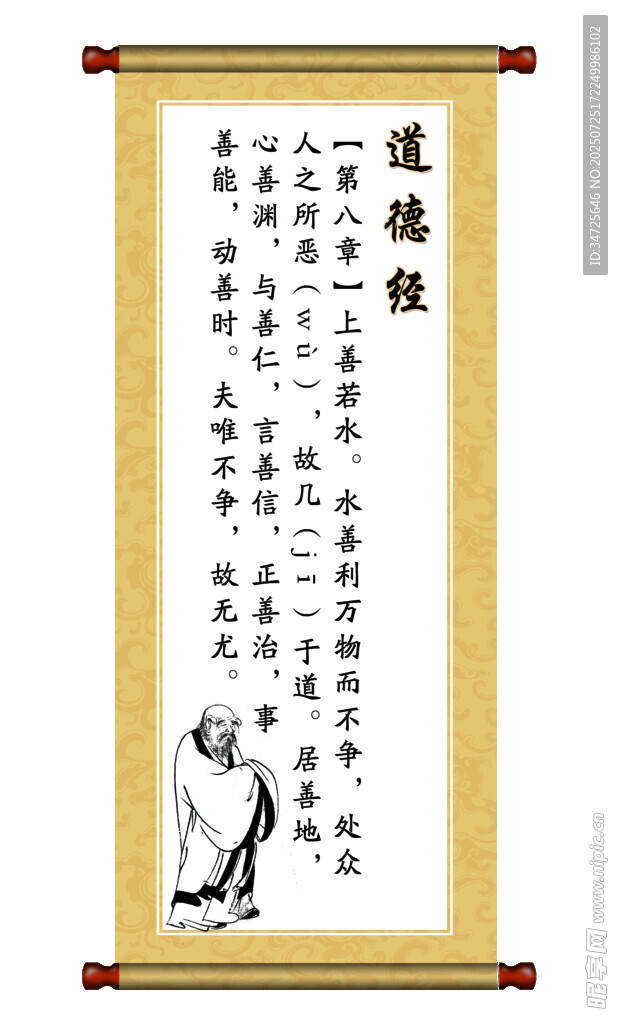 道德经
【第八章】上善若水。水善利万物而不争，处众
人之所恶（wù），故几（jī）于道。居善地，
心善渊，与善仁，言善信，正善治，事
善能，动善时。夫唯不争，故无尤。
ID:34725646 NO:20250725172249986102
昵享网 www.nipic.cn